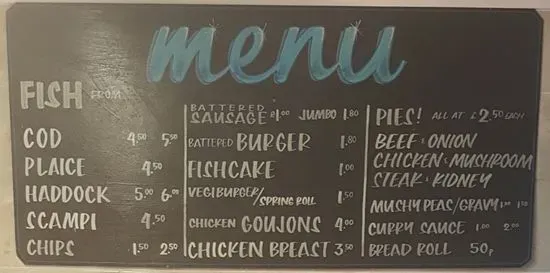 menu
FISH FROM
COD 4.50 5.50
PLAICE 4.50
HADDOCK 5.00 6.00
SCAMPI 4.50
CHIPS 1.50 2.50
BATTERED SAUSAGE £1.00 JUMBO 1.80
BATTERED BURGER 1.80
FISHCAKE 1.00
VEGIBURGER/SPRING ROLL 1.50
CHICKEN GOUJONS 4.00
CHICKEN BREAST 3.50
PIES! ALL AT £2.50 EACH
BEEF & ONION
CHICKEN & MUSHROOM
STEAK & KIDNEY
MUSHY PEAS/GRAVY 1.00 1.50
CURRY SAUCE 1.00 2.00
BREAD ROLL 50p